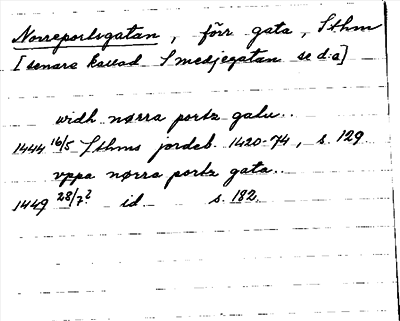 Norreportsgatan, förr gata, Sthm
[senare kallad Smedjegatan se d:o]
widh nørra portz gatu..
1444 16/5 Sthms jordeb. 1420-74, s. 129
vppa nørra portz gata..
1449 28/7? id. s. 182.